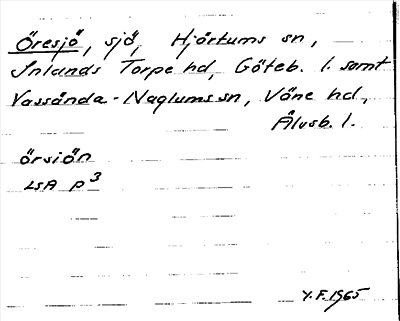 Öresjö, sjö, Hjärtums sn,
Inlands Torpe hd, Göteb. l. samt
Vassända-Naglums sn, Väne hd,
Älvsb. l.
örsiön
LSA p3
Y.F. 1965